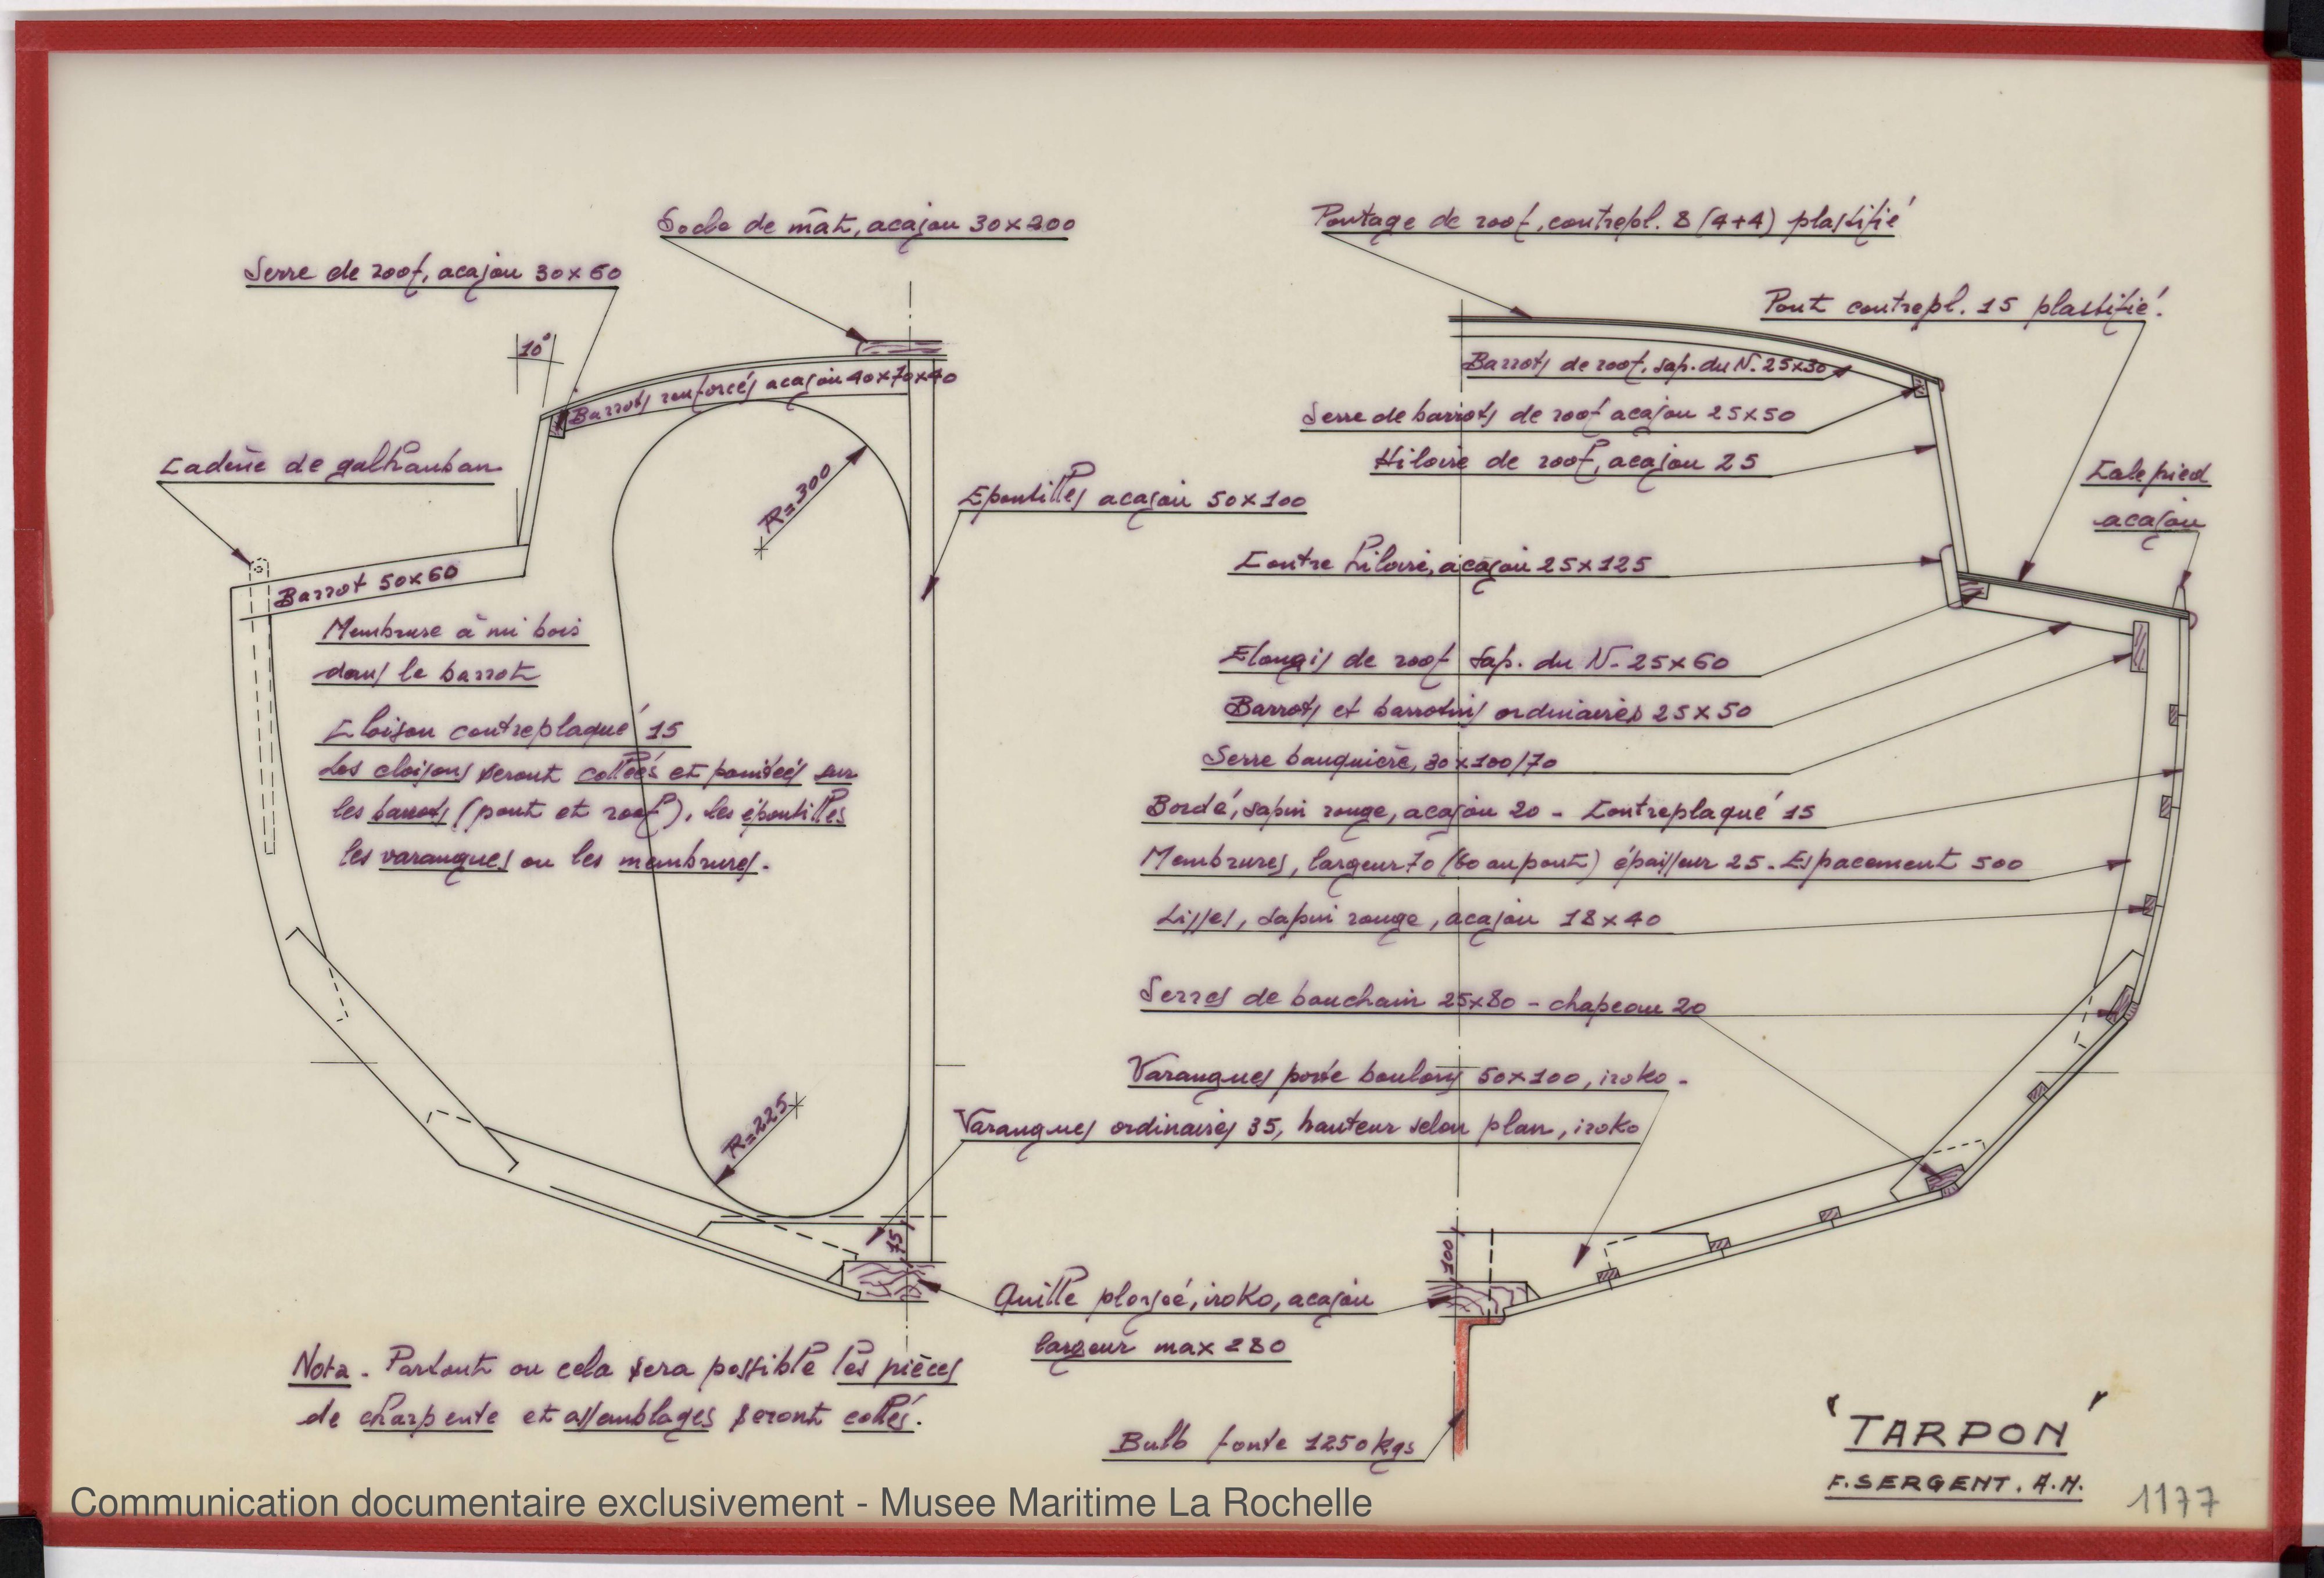 Socle de mât, acajou 30x200
Serre de roof, acajou 30x60
10°
Barrots renforcés acajou 40x70x40
Cadène de galhauban
R=300
Epontilles acajou 50x100
Barrot 50x60
Membrure à mi bois
dans le barrot
Cloison contreplaqué 15
Les cloisons seront collées et pointées sur
les barrots (pont et roof), les épontilles
les varangues ou les membrures.
R=225
75
Pontage de roof, contrepl. 8 (4+4) plastifié
Pont contrepl. 15 plastifié.
Barrots de roof, sap. du N. 25x30
Serre de barrots de roof acajou 25x50
Hiloire de roof, acajou 25
Cale pied
acajou
Contre hiloire, acajou 25x125
Elongis de roof sap. du N. 25x60
Barrots et barrotins ordinaires 25x50
Serre bauquière, 30x100/70
Bordé, sapin rouge, acajou 20 - Contreplaqué 15
Membrures, largeur 70 (60 au pont) épaisseur 25. Espacement 500
Lisses, sapin rouge, acajou 18x40
Serres de bouchain 25x80 - chapeau 20
Varangues porte boulons 50x100, iroko -
Varangues ordinaires 35, hauteur selon plan, iroko
100
Quille ployée, iroko, acajou
largeur max 280
Nota - Partout ou cela sera possible les pièces
de charpente et assemblages seront collés.
Bulb fonte 1250 kgs
"TARPON"
F. SERGENT. A.N.
1177
Communication documentaire exclusivement - Musee Maritime La Rochelle